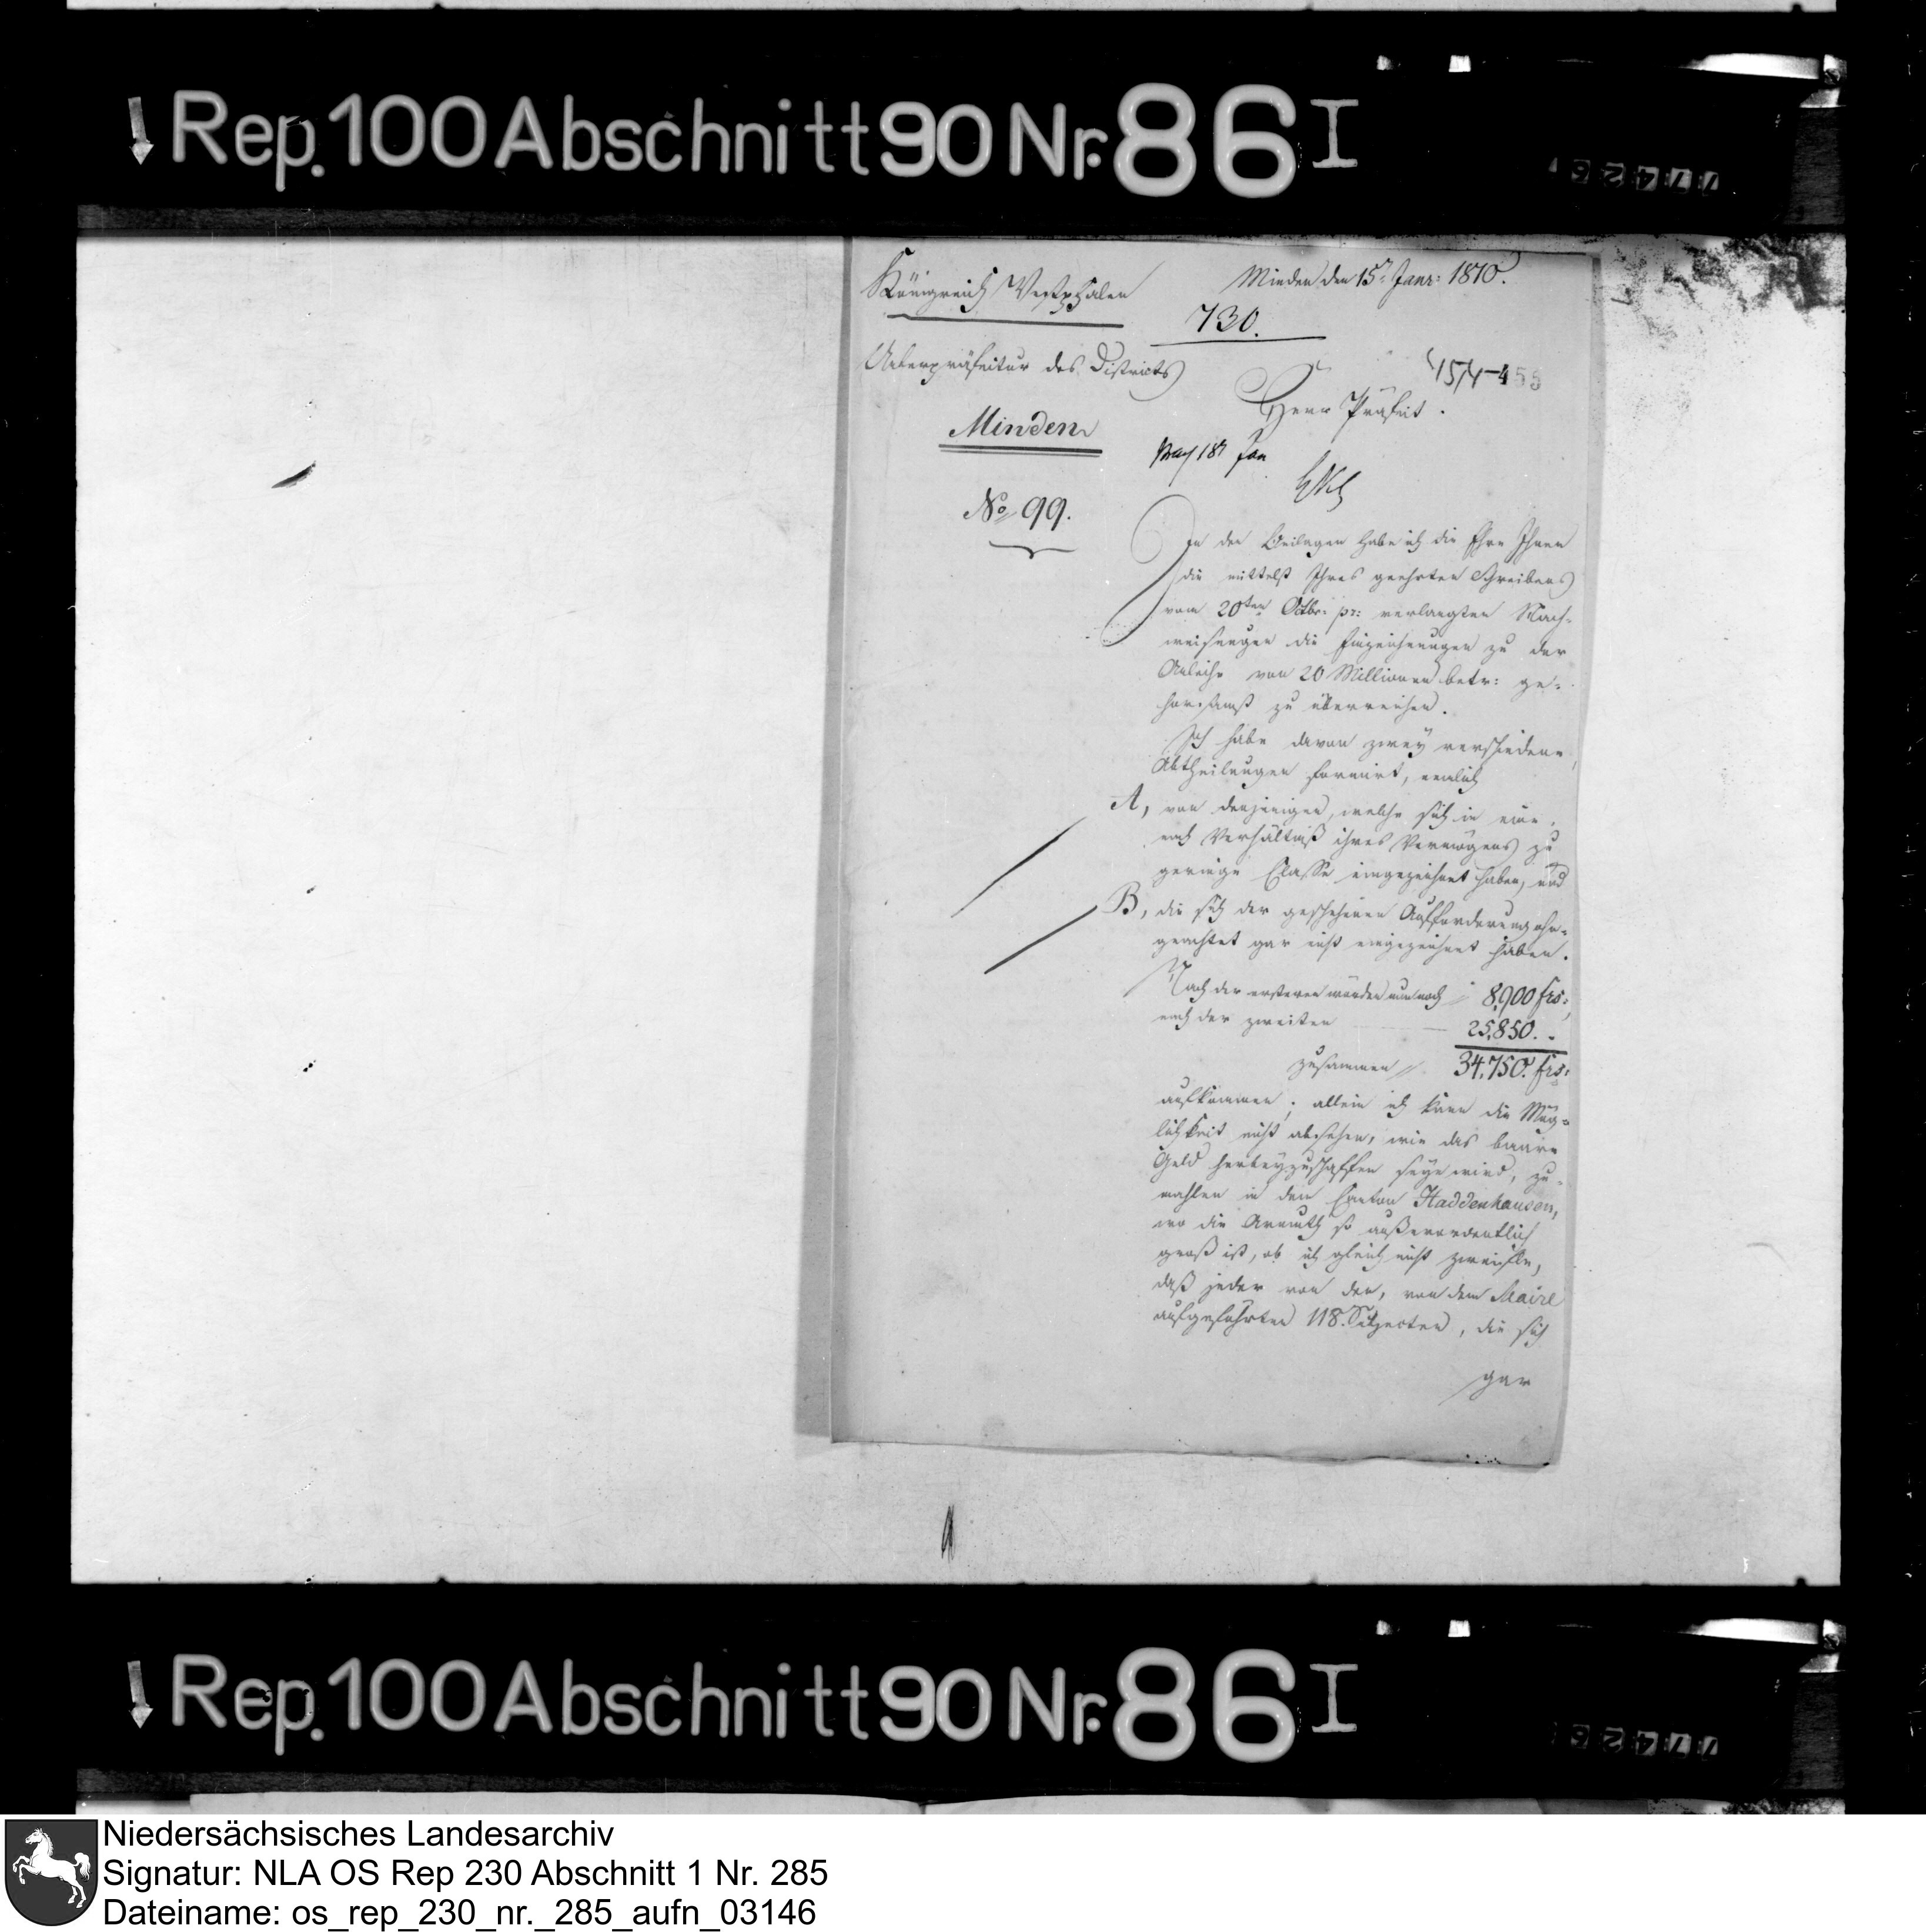 Rep. 100 Abschnitt 90 Nr. 86 I
Königreich Westphalen
Minden den 15ᵗ Janr: 1810.
730.
Unterpräfectur des Districts
Minden
No 99.
Herr Präfect.
In den Beilagen habe ich die Ehre Ihnen
die mittelst Ihres geehrten Schreibens
vom 20ten Octbr: pr: verlangten Nach-
weisungen die Einzeichnungen zu der
Anleihe von 20 Millionen betr: ge-
horsamst zu überreichen.
Ich habe davon zwey verschiedene
Abtheilungen formirt, nemlich
A, von denjenigen, welche sich in eine,
nach Verhältniß ihres Vermögens zu
geringe Classe eingezeichnet haben, und
B, die sich der geschehenen Aufforderung ohn-
geachtet gar nicht eingezeichnet haben.
Nach der ersteren würden nun noch 8,900 frs:,
nach der zweiten 25,850. -
zusammen 34,750. frs:
aufkommen; allein ich kann die Mög-
lichkeit nicht absehen, wie das baare
Geld herbeyzuschaffen seyn wird, zu-
mahlen in dem Canton Haddenhausen,
wo die Armuth so außerordentlich
groß ist, ob ich gleich nicht zweifle,
daß jeder von den, von dem Maire
aufgeführten 118. Subjecten, die sich
gar
Rep. 100 Abschnitt 90 Nr. 86 I
Niedersächsisches Landesarchiv
Signatur: NLA OS Rep 230 Abschnitt 1 Nr. 285
Dateiname: os_rep_230_nr._285_aufn_03146